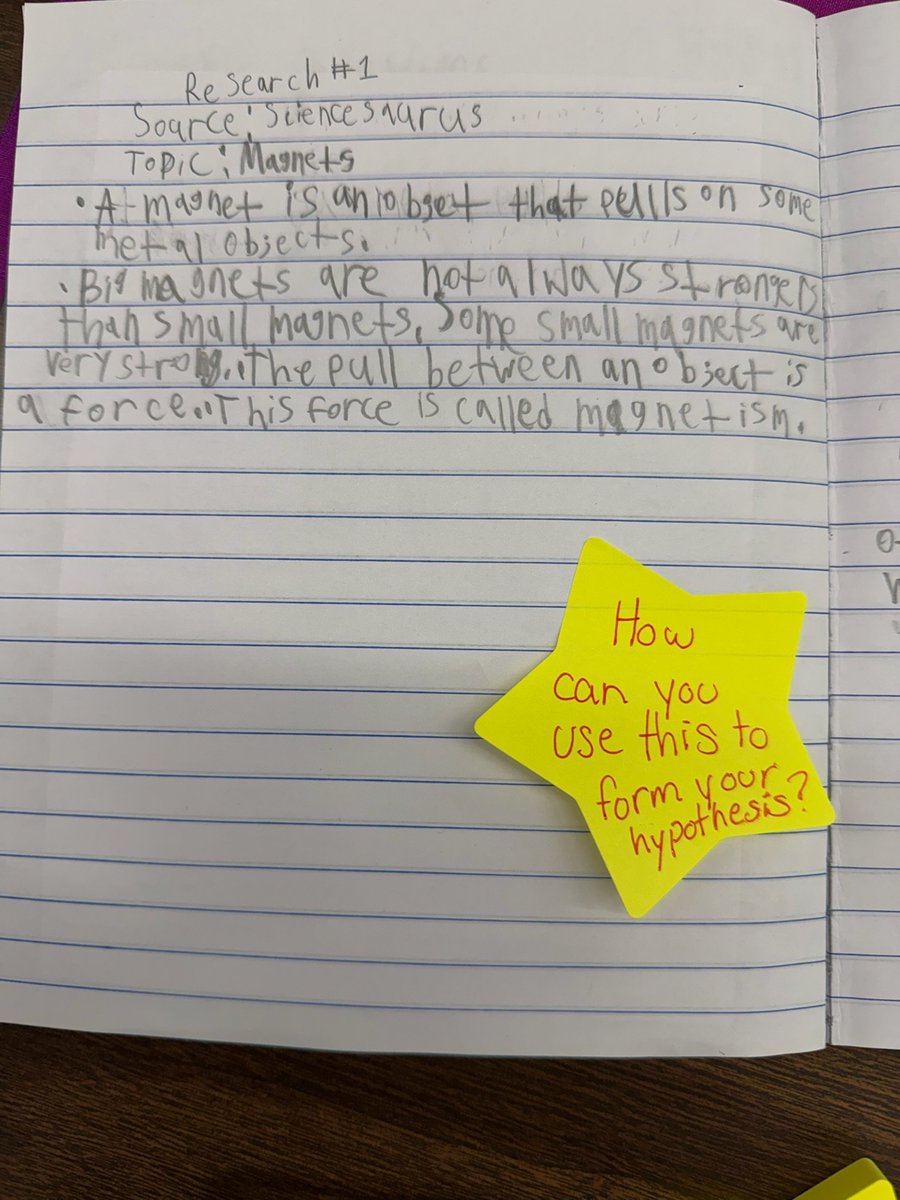 Research #1
Source: Sciencesaurus
Topic: Magnets
• A magnet is an object that pulls on some
metal objects.
• Big magnets are not always strongers
than small magnets. Some small magnets are
very strong. The pull between an object is
a force. This force is called magnetism.
How
can you
use this to
form your
hypothesis?